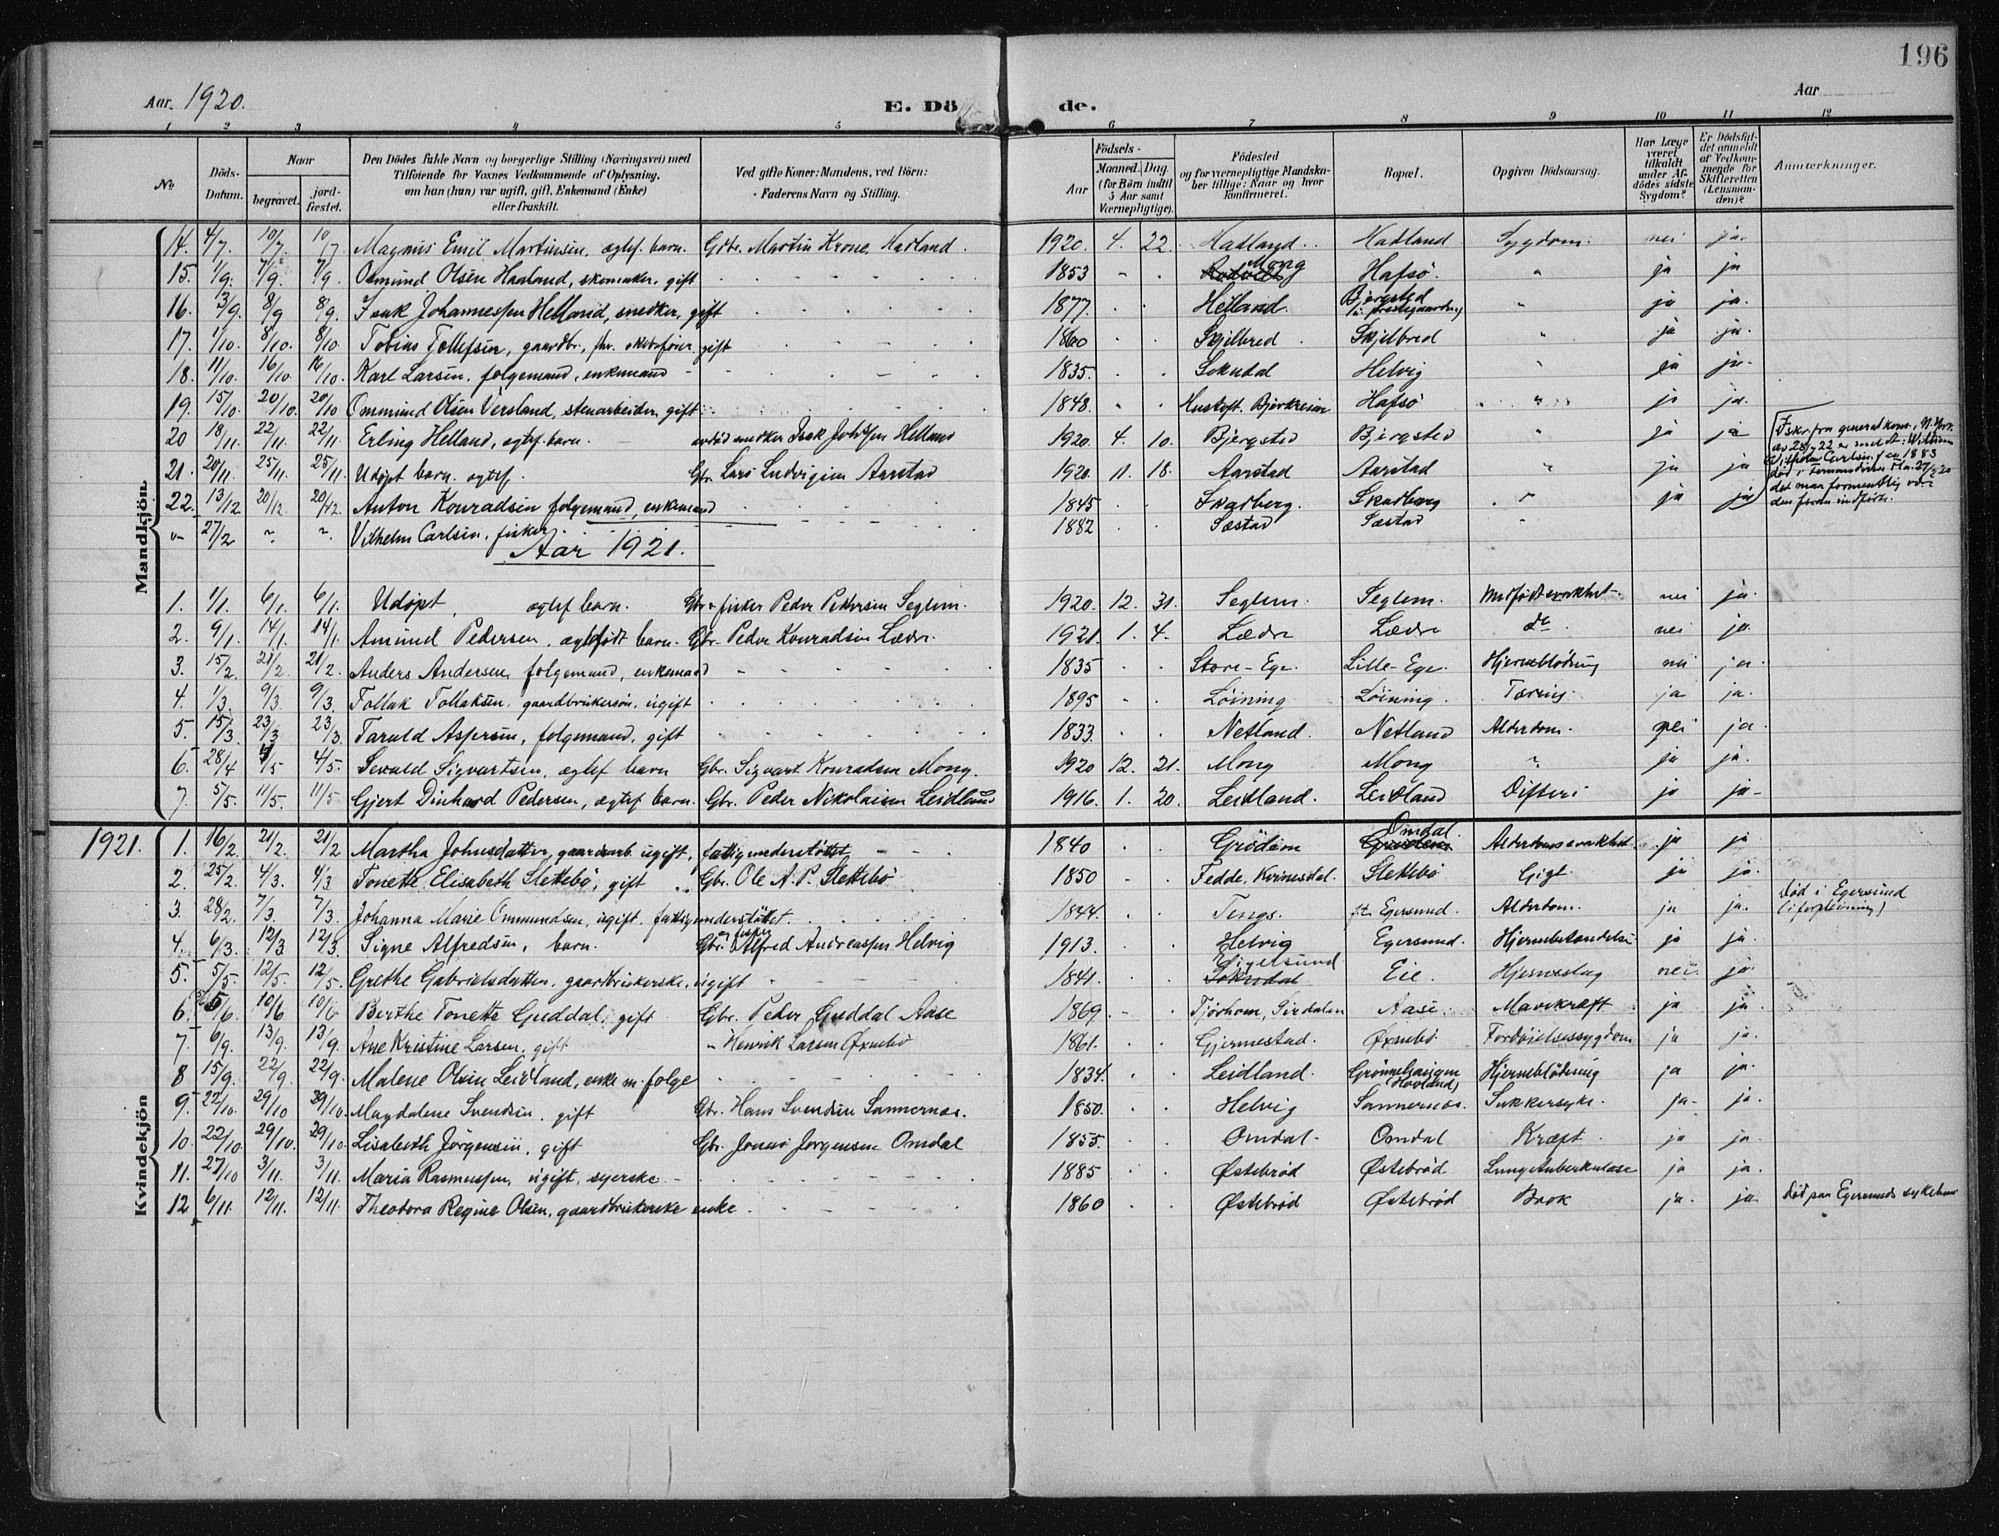 196
Aar 1920. E. Dö de. Aar
1 2 3 4 5 6 7 8 9 10 11 12
No Döds-Datum. Naar begravet. jordfæstet. Den Dödes fulde Navn og borgerlige Stilling (Næringsvei) med Tilföiende for Voxnes Vedkommende af Oplysning, om han (hun) var ugift, gift, Enkemand (Enke) eller fraskilt. Ved gifte Koner: Mandens, ved Börn: Faderens Navn og Stilling. Födsels- Aar Maaned. Dag. (for Börn indtil 5 Aar samt Værnepligtige). Födested og for værnepligtige Mandskaber tillige: Naar og hvor konfirmeret. Bopæl. Opgiven Dödsaarsag. Har Læge været tilkaldt under Afdödes sidste Sygdom? Er Dödsfaldet anmeldt af Vedkommende for Skifteretten (Lensmanden)? Anmærkninger.
Mandkjön.
14. 4/7 10/7 10/7 Magnus Emil Martinsen, ægtef. barn. Gdbr. Martin Krone, Hadland. 1920. 4. 22. Hadland. Hadland Sygdom. nei ja.
15. 1/9. 7/9. 7/9. Osmund Olsen Haaland, skomaker, gift 1853 Mong Hafsö. " ja ja
16. 3/9. 8/9 8/9. Isak Johannessen Helland, snedker, gift 1877. Helland. Bjergsted (i prestegaarden) " ja ja.
17. 1/10. 8/10. 8/10 Tobias Tollefsen, gaardbr., fhv. skibsfører gift 1860 Skjilbred Skjilbred " ja ja.
18. 11/10. 16/10. 16/10. Karl Larsen, folgemand, enkemand 1835. Sokndal Helvig " ja ja.
19. 15/10. 20/10. 20/10 Ommund Olsen Versland, stenarbeider, gift 1848. Hustoft. Bjerkreim Hafsö " ja ja.
20 18/11. 22/11. 22/11. Erling Helland, ægtef. barn. avdød snedker Isak Joh's'sen Helland 1920. 4. 10. Bjergsted Bjergsted " ja ja
21. 20/11. 25/11. 25/11. Udøpt barn. ægtef. Gbr. Lars Ludvigsen Aarstad 1920. 11. 18. Aarstad Aarstad " ja ja
22. 13/12 20/12. 20/12. Anton Konradsen folgemand, enkemand 1845 Skadberg. Skadberg " ja ja
" 27/2 " " Vilhelm Carlsen, fisker. 1882 Sæstad Sæstad "
Iskr. fra generalkons., N. York
av 28/7 22 er
Vilhelm Carlsen f. en 1883
død i 27/2 20
det maa formentlig være
den foran indførte.
Aar 1921.
1. 1/1. 6/1. 6/1. Udøpt, ægtef barn. Gbr. fisker Peder Pedersen Seglem. 1920. 12. 31. Seglem. Seglem. Medfødt svakhet nei ja.
2. 9/1. 14/1. 14/1. Amund Pedersen, ægtefødt barn. Gbr. Peder Konradsen Lædr. 1921. 1. 4. Lædre Lædre do. nei ja.
3. 15/2. 21/2 21/2. Anders Andersen folgemand, enkemand 1835 Store-Ege. Lille-Ege. Hjerneblødning nei ja.
4. 1/3. 9/3. 9/3. Tollak Tollaksen. gaardbrukersøn, ugift 1895 Løining Løining. Tæring. ja ja.
5. 15/3. 23/3 23/3. Tarald Aspersen, folgemand, gift 1833. Netland. Netland Alderdom. nei ja.
6. 28/4 4/5 4/5. Sevald Sigvartsen, ægtef barn Gbr. Sigvart Konradsen Mong. 1920 12. 21. Mong Mong " ja ja.
7. 5/5. 11/5. 11/5 Gjert Dinhard Pedersen, ægtef barn. Gbr. Peder Nikolaisen Leidland 1916. 1. 20. Leidland. Leidland Difteri ja ja
Kvindekjön
1921. 1. 16/2. 21/2. 21/2 Martha Johnsdatter, gaardarb. ugift, fattigunderstøttet 1840 Grødem Omdal. Alderdomssvakhet ja ja
2. 25/2. 4/3. 4/3 Tonette Elisabeth Slettebö, gift Gbr. Ole A. P. Slettebö 1850 Fedde, Kvinesdal. Slettebö Gigt. ja ja.
3. 28/2. 7/3. 7/3. Johanna Marie Ommundsen, ugift. fattigunderstøttet. 1844. Tengs. Egersund. Alderdom. ja ja. Død i Egersund (i forpleining)
4. 6/3. 12/3 12/3. Signe Alfredsen, barn. Gbr. og fisker Alfred Andreassen Helvig 1913. Helvig Egersund. Hjernebetændelse ja ja.
5. 5/5. 12/5. 12/5. Grethe Gabrielsdatter, gaardbrukerske, ugift 1841. Sigelsund Sokndal Eie. Hjerneslag nei ja
6. 5/6. 10/6 10/6 Berthe Tonette Gueddal, gift Gbr. Peder Gueddal Aase 1869 Tjörhom, Sirdalen Aase. Mavekræft ja ja.
7. 6/9. 13/9. 13/9. Ane Kristine Larsen, gift " Henrik Larsen Øxnebö 1861. Gjermestad. Øxnebö Fordøielsessygdom ja ja.
8 15/9. 22/9. 22/9. Malene Olsen Leidland, enke m. folge 1834. Leidland. Grönehaugen (Hovland) Hjerneblödning ja ja.
9. 22/10. 29/10 29/10. Magdalene Svendsen, gift Gbr. Hans Svendsen Sannernes. 1850. Helvig Sannernes. Sukkersyke. ja ja.
10. 22/10. 29/10. 29/10. Lisabeth Jörgensen, gift Gbr. Jonas Jörgensen Omdal 1855. Omdal Omdal Kræft. ja ja
11. 27/10 3/11. 3/11. Maria Rasmussen, ugift, syerske 1885 Østebrød Østebrød Lungetuberkulose ja ja.
12 6/11. 12/11. 12/11. Theodora Regine Olsen, gaardbrukerske enke 1860 Østebrød Østebrød Brok ja. ja. Død paa Egersunds sykehus